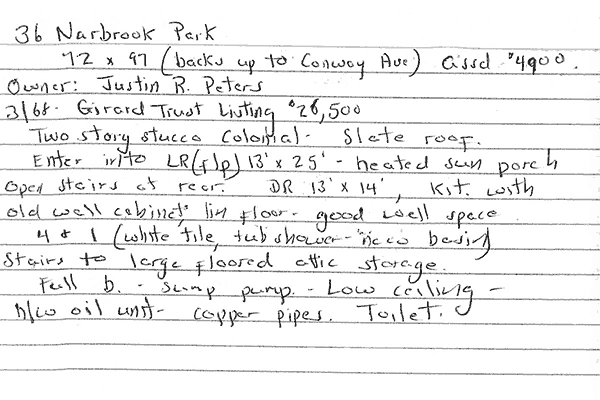 36 Narbrook Park
72 x 97 (backs up to Conway Ave) assd $4900.
Owner: Justin R. Peters
3/68. Girard Trust Listing $26,500
Two story stucco Colonial. Slate roof.
Enter into LR (f/p) 13' x 25' - heated sun porch
Open stairs at rear. DR 13' x 14', Kit. with
old wall cabinets lin floor - good wall space
4 & 1 (white tile, tub shower - basin)
Stairs to large floored attic storage.
Full b. - Sump pump. - Low ceiling -
h/w oil unit - copper pipes. Toilet.